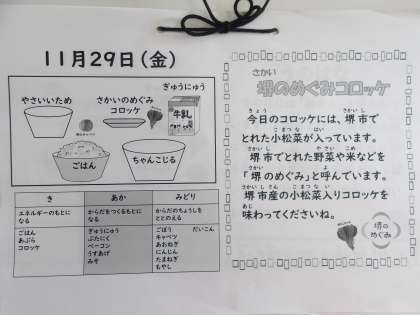 11月29日(金)
ぎゅうにゅう
やさいいため
さかいのめぐみ
コロッケ
牛乳
ごはん
ちゃんこじる
き
あか
みどり
エネルギーのもとに
なる
からだをつくるもとに
なる
からだのちょうしを
ととのえる
ごはん
あぶら
コロッケ
ぎゅうにゅう
ぶたにく
ベーコン
うすあげ
みそ
ごぼう だいこん
キャベツ
あおねぎ
にんじん
たまねぎ
もやし
さかい
堺のめぐみコロッケ
きょう さかいし
今日のコロッケには、堺市で
こまつな はい
とれた小松菜が入っています。
さかいし やさい こめ
堺市でとれた野菜や米などを
さかい よ
「堺のめぐみ」と呼んでいます。
さかいしさん こまつな い
堺市産の小松菜入りコロッケを
あじ
味わってくださいね。
堺の
めぐみ